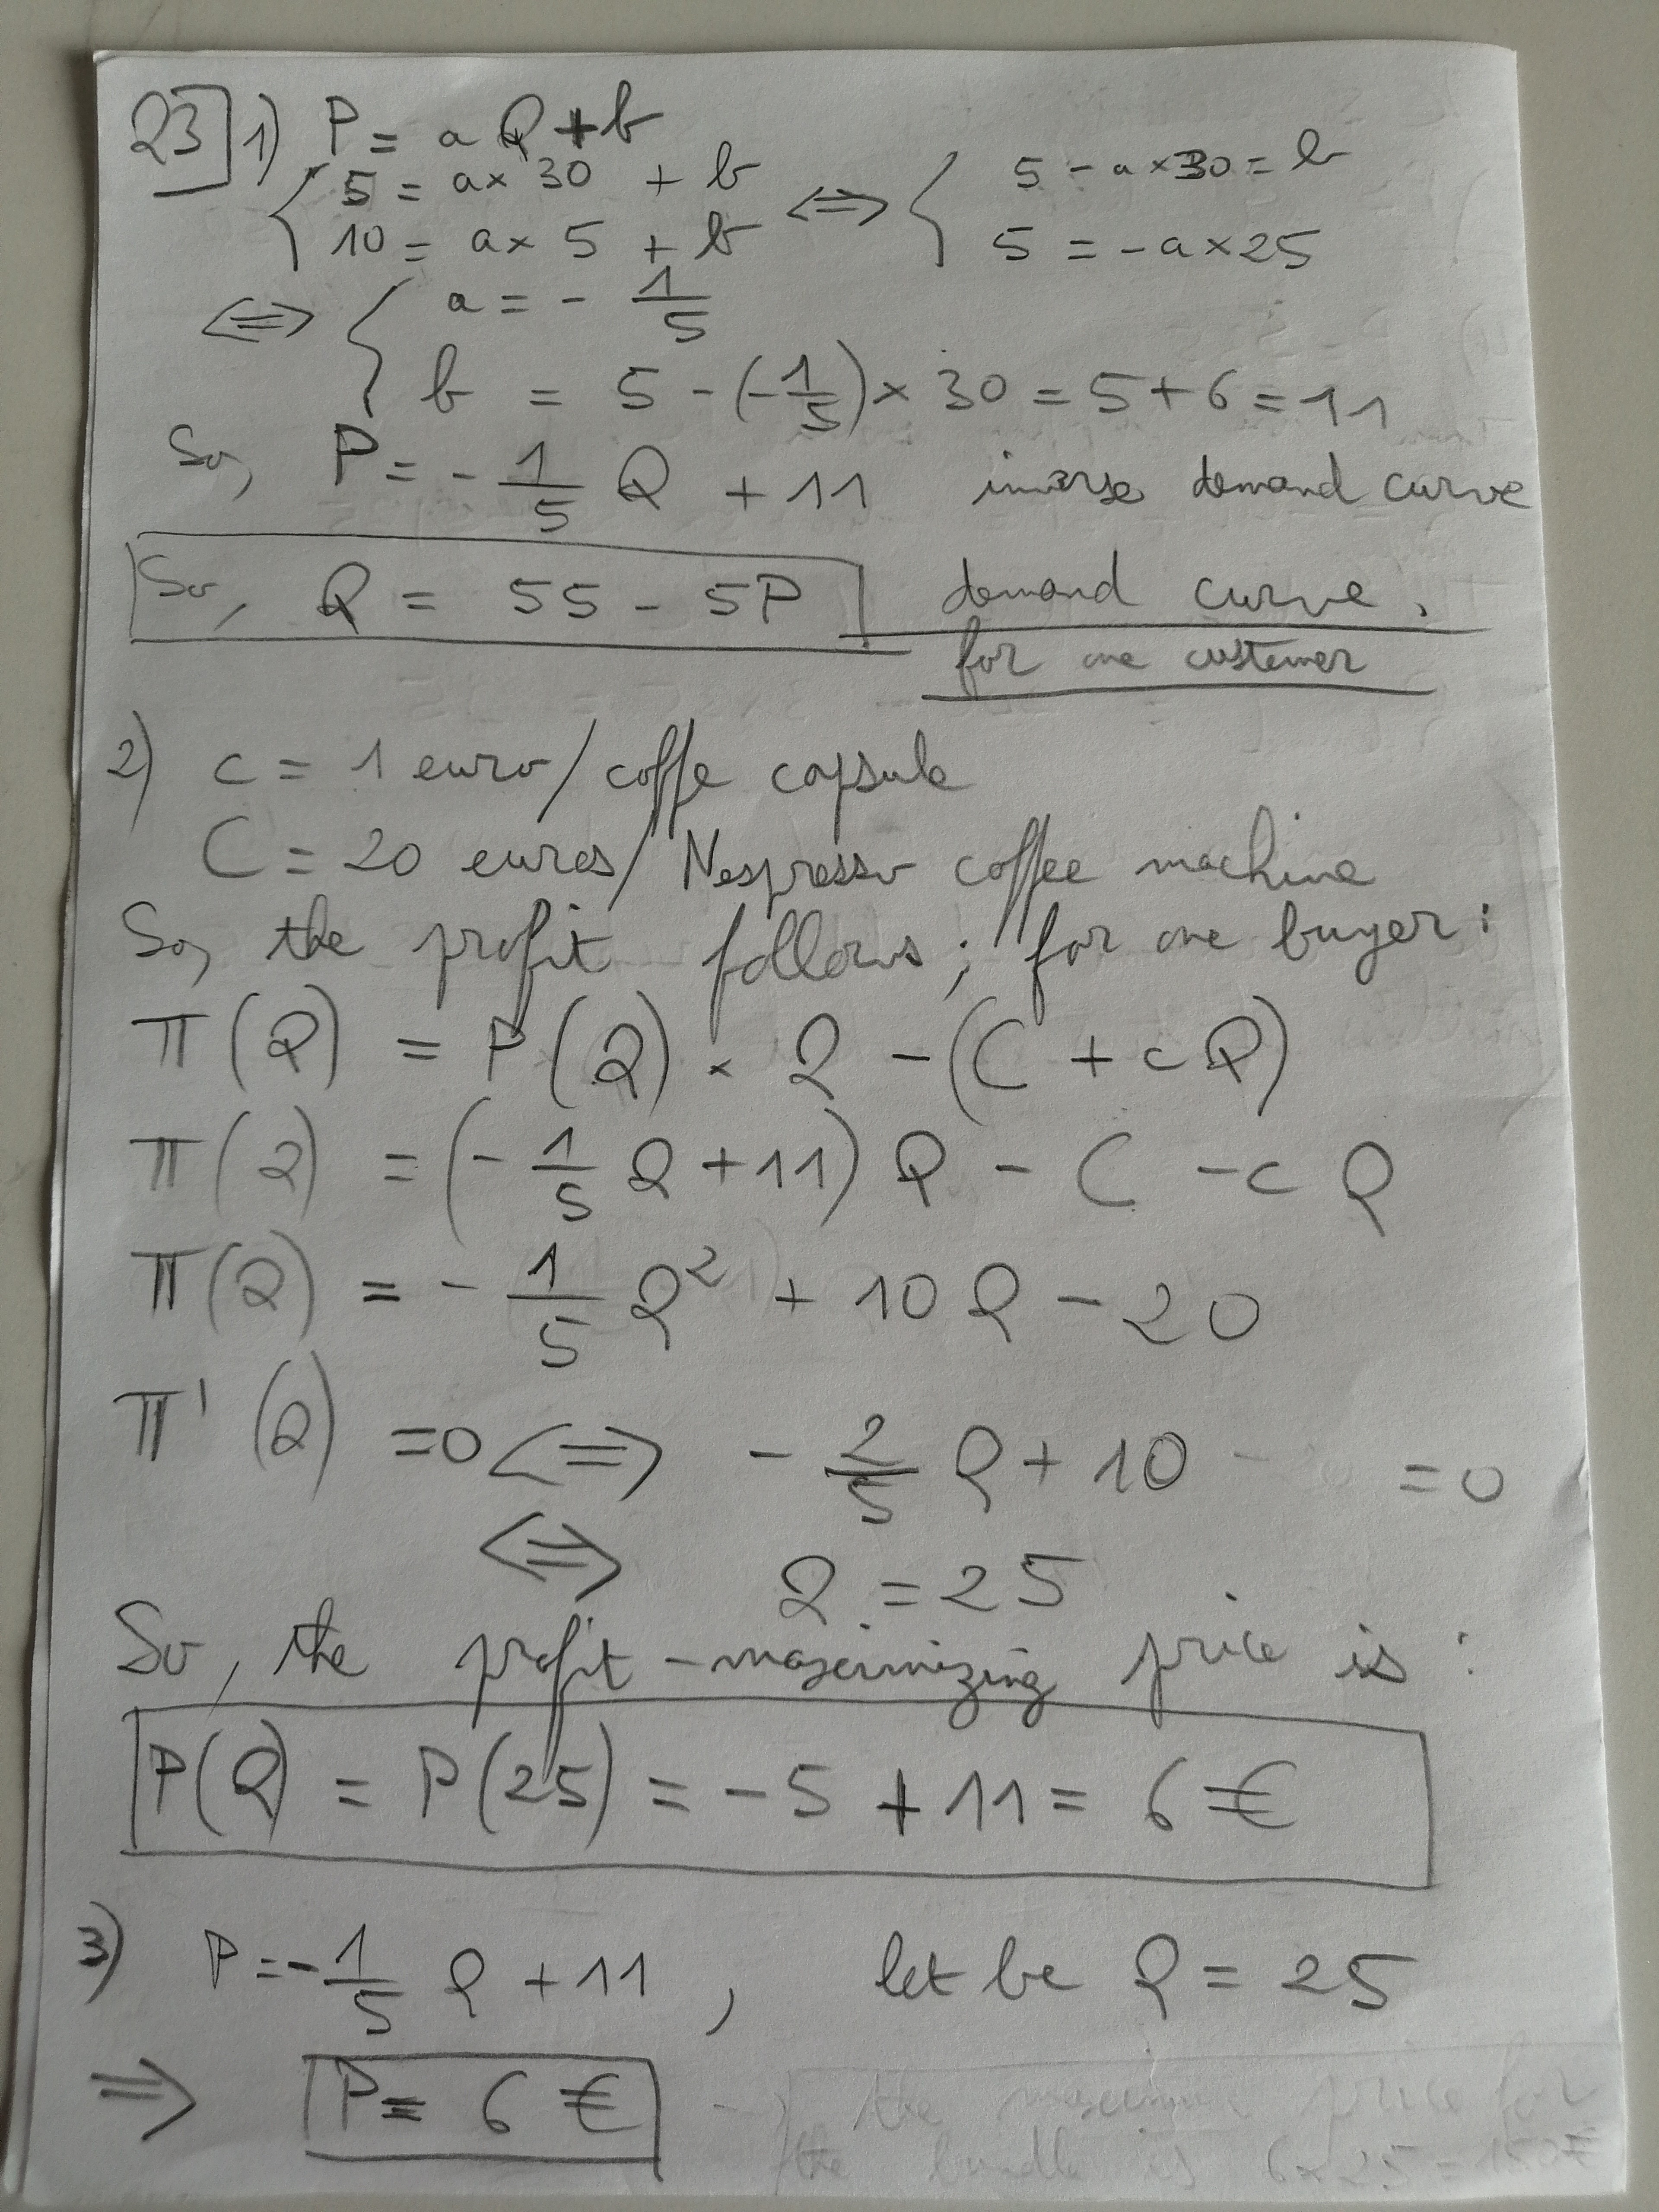 23] 1) P = a Q + b
{ 5 = a × 30 + b ⟺ { 5 - a × 30 = b
10 = a × 5 + b 5 = - a × 25
⟺ { a = - 1/5
b = 5 - (-1/5) × 30 = 5 + 6 = 11
So, P = - 1/5 Q + 11 inverse demand curve
So, Q = 55 - 5P demand curve.
for one custemer
2) c = 1 euro / coffe capsule
C = 20 euros / Nespresso coffee machine
So, the profit follows; for one buyer:
π(Q) = P(Q) × Q - (C + cQ)
π(Q) = (- 1/5 Q + 11) Q - C - c Q
π(Q) = - 1/5 Q² + 10 Q - 20
π'(Q) = 0 ⟺ - 2/5 Q + 10 = 0
⟺ Q = 25
So, the profit-maximizing price is:
P(Q) = P(25) = -5 + 11 = 6 €
3) P = - 1/5 Q + 11, let be Q = 25
⟹ P = 6 € → the maximum price for
the bundle is 6 × 25 = 150 €